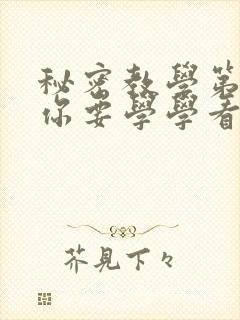 秘密教學第
你要學學看
芥見下々